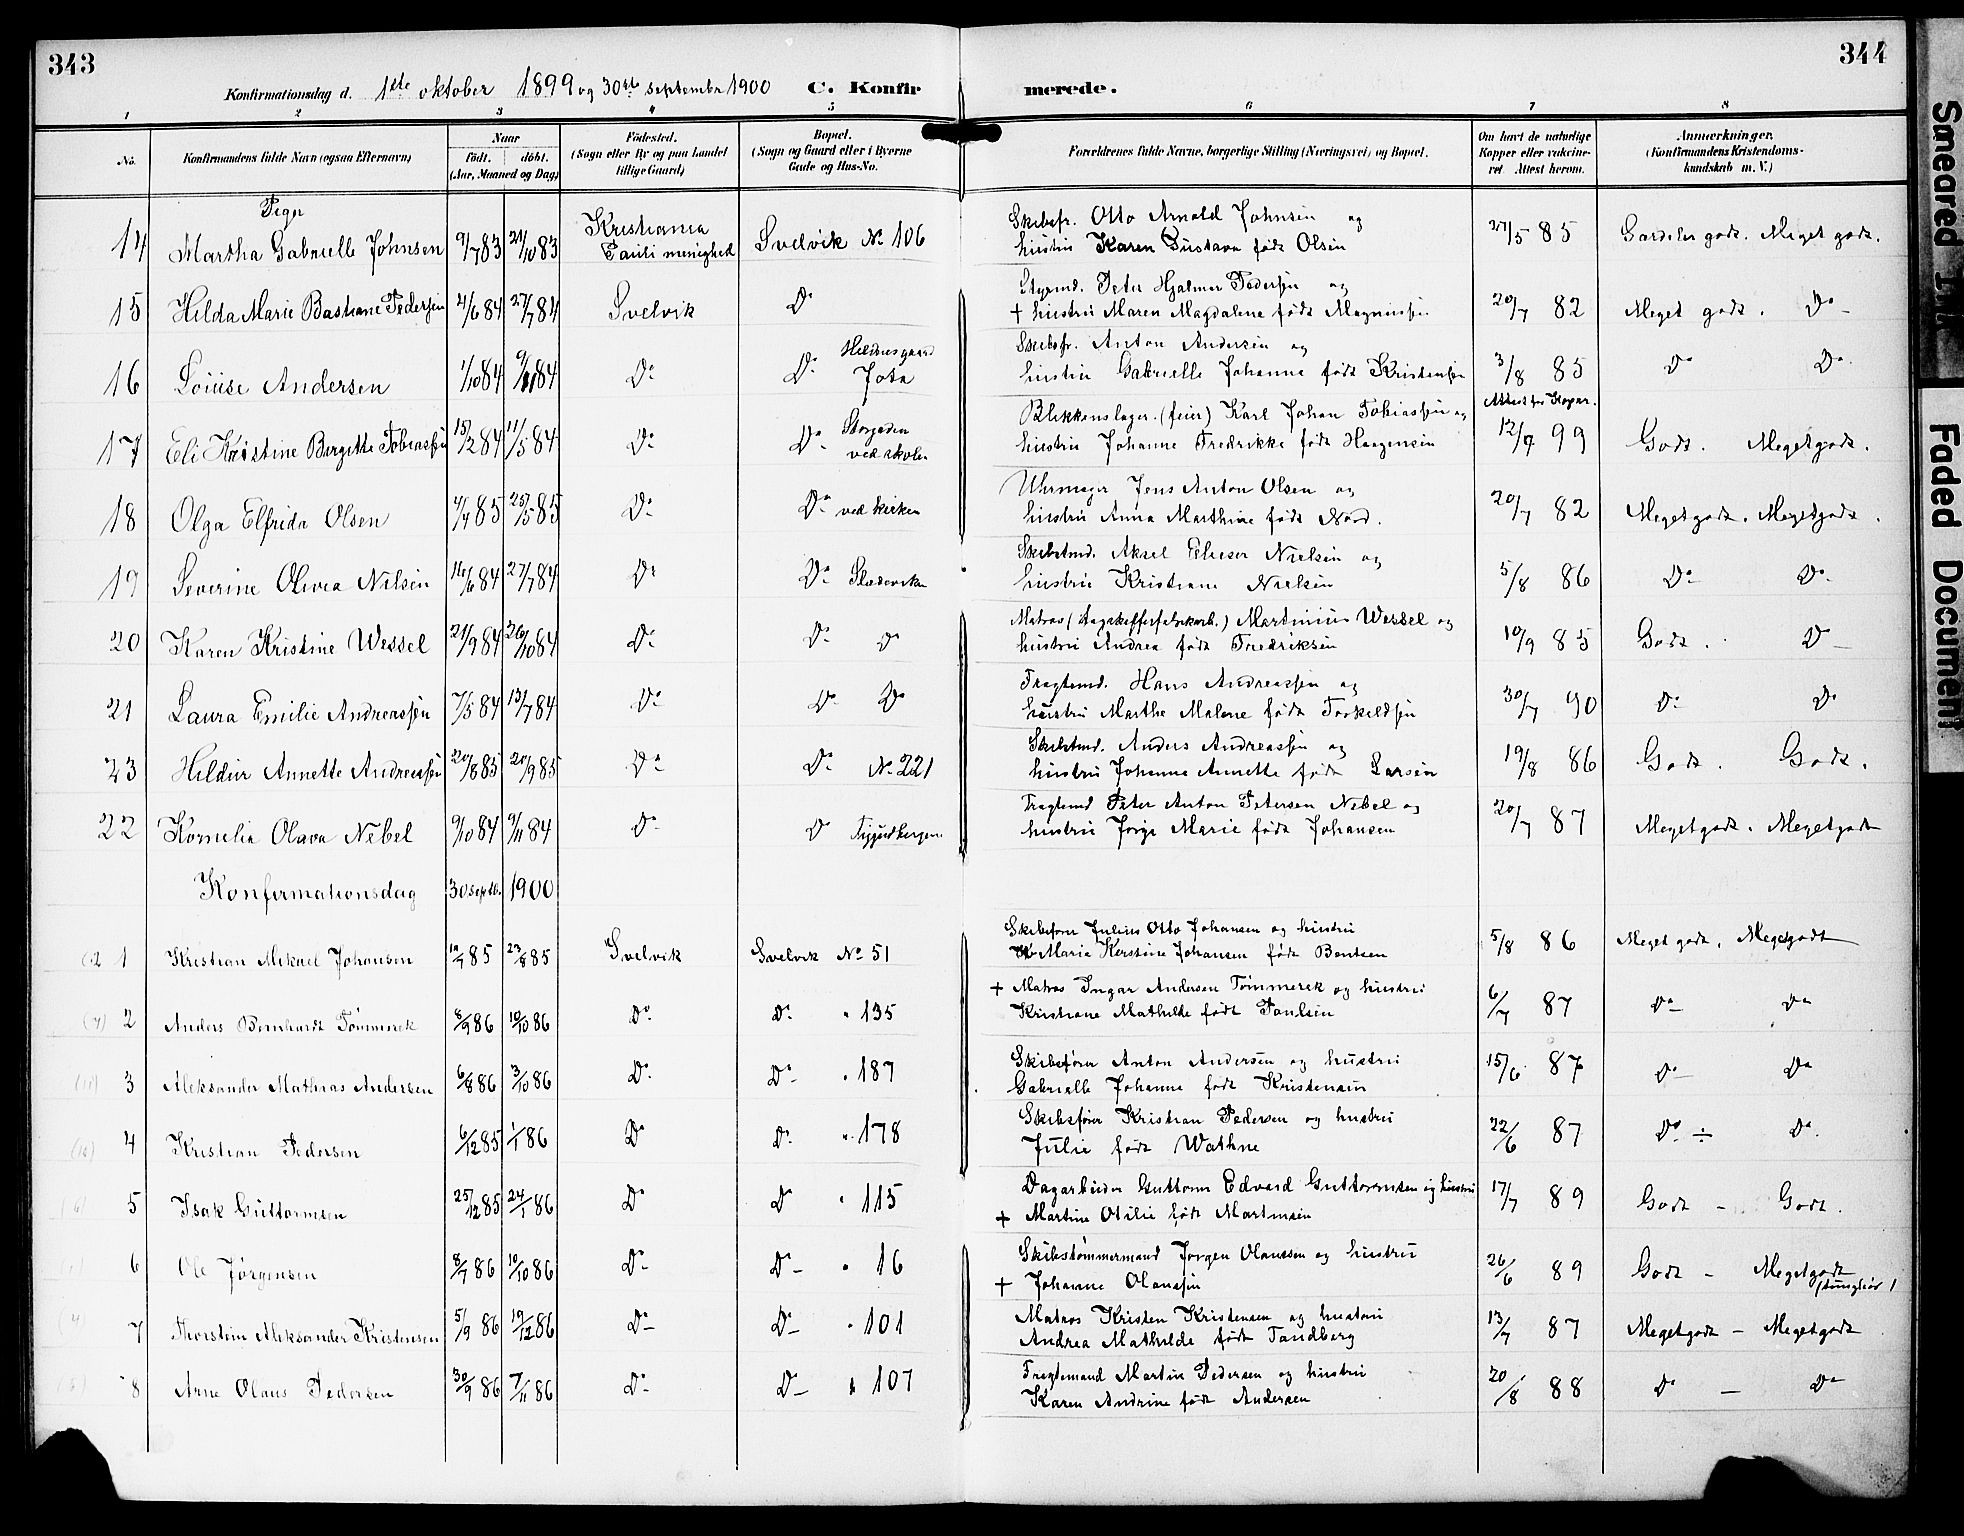 343
344
Konfirmationsdag d. 1ste oktober 1899 og 30te septembr 1900 C. Konfirmerede.
1 2 3 4 5 6 7 8
No. Konfirmandens fulde Navn (ogsaa Efternavn) Naar født. døbt. (Aar, Maaned og Dag) Fødested. (Sogn eller By og paa Landet tillige Gaard) Bopæl. (Sogn og Gaard eller i Byerne Gade og Hus-No. Forældrenes fulde Navne, borgerlige Stilling (Næringsvei) og Bopæl. Om havt de naturlige Kopper eller vaccineret. Attest herom. Anmærkninger. (Konfirmandens Kristendomskundskab m. V.)
Piger
14 Martha Gabrielle Johnsen 9/7 83 21/10 83 Kristiania Pauli menighed Svelvik No 106 Skibsfr. Otto Arnold Johnsen og
hustru Karen Gustava født Olsen 27/5 85 Særdeles godt. Meget godt.
15 Hilda Marie Bastiane Pedersen 21/6 84 27/7 84 Svelvik Do Styrmd. Peter Hjalmar Pedersen og
+ hustru Maren Magdalene født Magnussen 20/7 82 Meget godt. Do
16 Louise Andersen 1/10 84 9/11 84 Do Do Jota Skibsfr. Anton Andersen og
hustru Gabrielle Johanne født Kristensen 3/8 85 Do Do
17 Eli Kristine Birgitte Tobiassen 15/2 84 11/5 84 Do Do Storgaden ved skolen Blikkenslager (feier) Karl Johan Tobiassen og
hustru Johanne Fredrikke født Haagensen Attest for Kopper. 12/9 99 Godt. Megetgodt.
18 Olga Elfrida Olsen 4/4 85 25/5 85 Do Do ved kirken Uhrmager Jens Anton Olsen og
hustru Anna Marthine født Nord. 20/7 82 Megetgodt. Megetgodt.
19 Severine Olivia Nilsen 16/6 84 27/7 84 Do Do Skibstmd. Aksel Elieser Nielsen og
hustru Kristiane Nielsen 5/8 86 Do Do
20 Karen Kristine Wessel 21/9 84 26/10 84 Do Do Do Matros Martinius Wessel og
hustru Andrea født Fredriksen 10/9 85 Godt. Do
21 Laura Emilie Andreassen 7/5 84 13/7 84 Do Do Do Fragtemd. Hans Andreassen og
hustru Marthe Malene født Torkildsen 30/7 90 Do Do
23 Hildur Annette Andreassen 20/8 85 20/9 85 Do Do No 221 Skibstmd. Anders Andreassen og
hustru Johanne Annette født Larsen 19/8 86 Godt. Godt.
22 Kornelia Olava Nebel 9/10 84 9/11 84 Do Do Fragtemd Peter Anton Petersen Nebel og
hustru Jorge Marie født Johansen 20/7 87 Megetgodt. Megetgodt
Konfirmationsdag 30 septb. 1900
1 Kristian Mikael Johansen 12/7 85 23/8 85 Svelvik Svelvik No 51 Skibsfører Julius Otto Johansen og hustru
Marie Kerstine Johansen født Bentsen 5/8 86 Meget godt. Megetgodt
2 Anders Bernhardt Tømmerek 8/9 86 10/10 86 Do Do " 135 + Matros Ingar Andersen Tømmerek og hustru
Kristiane Mathilde født Paulsen 6/7 87 Do Do
3 Aleksander Mathias Andersen 6/8 86 3/10 86 Do Do " 187 Skibsfører Anton Andersen og hustru
Gabrielle Johanne født Kristensen 15/6 87 Do Do
4 Kristian Pedersen 6/12 85 1/1 86 Do Do " 178 Skibsfører Kristian Pedersen og hustru
Julie født Wathne 22/6 87 Do ÷ Do
5 Isak Guttormsen 25/12 85 24/1 86 Do Do " 115 Dagarbeider Guttorm Edvard Guttormsen og hustru
+ Martine Otilie født Martinsen 17/7 89 Godt - Godt.
6 Ole Jørgensen 8/7 86 10/10 86 Do Do " 16 Skibstømmermand Jørgen Olaussen og hustru
+ Johanne Olaussen 26/6 89 Godt - Megetgodt (tunghør)
7 Thorstein Aleksander Kristensen 5/9 86 19/12 86 Do Do " 101 Matros Kristen Kristensen og hustru
Andrea Mathilde født Tandberg 13/7 87 Megetgodt - Megetgodt
8 Arne Olaus Pedersen 30/9 86 7/11 86 Do Do " 107 Fragtemand Martin Pedersen og hustru
Karen Andrine født Andersen 20/8 88 Do - Do
Smeared Ink
Faded Document